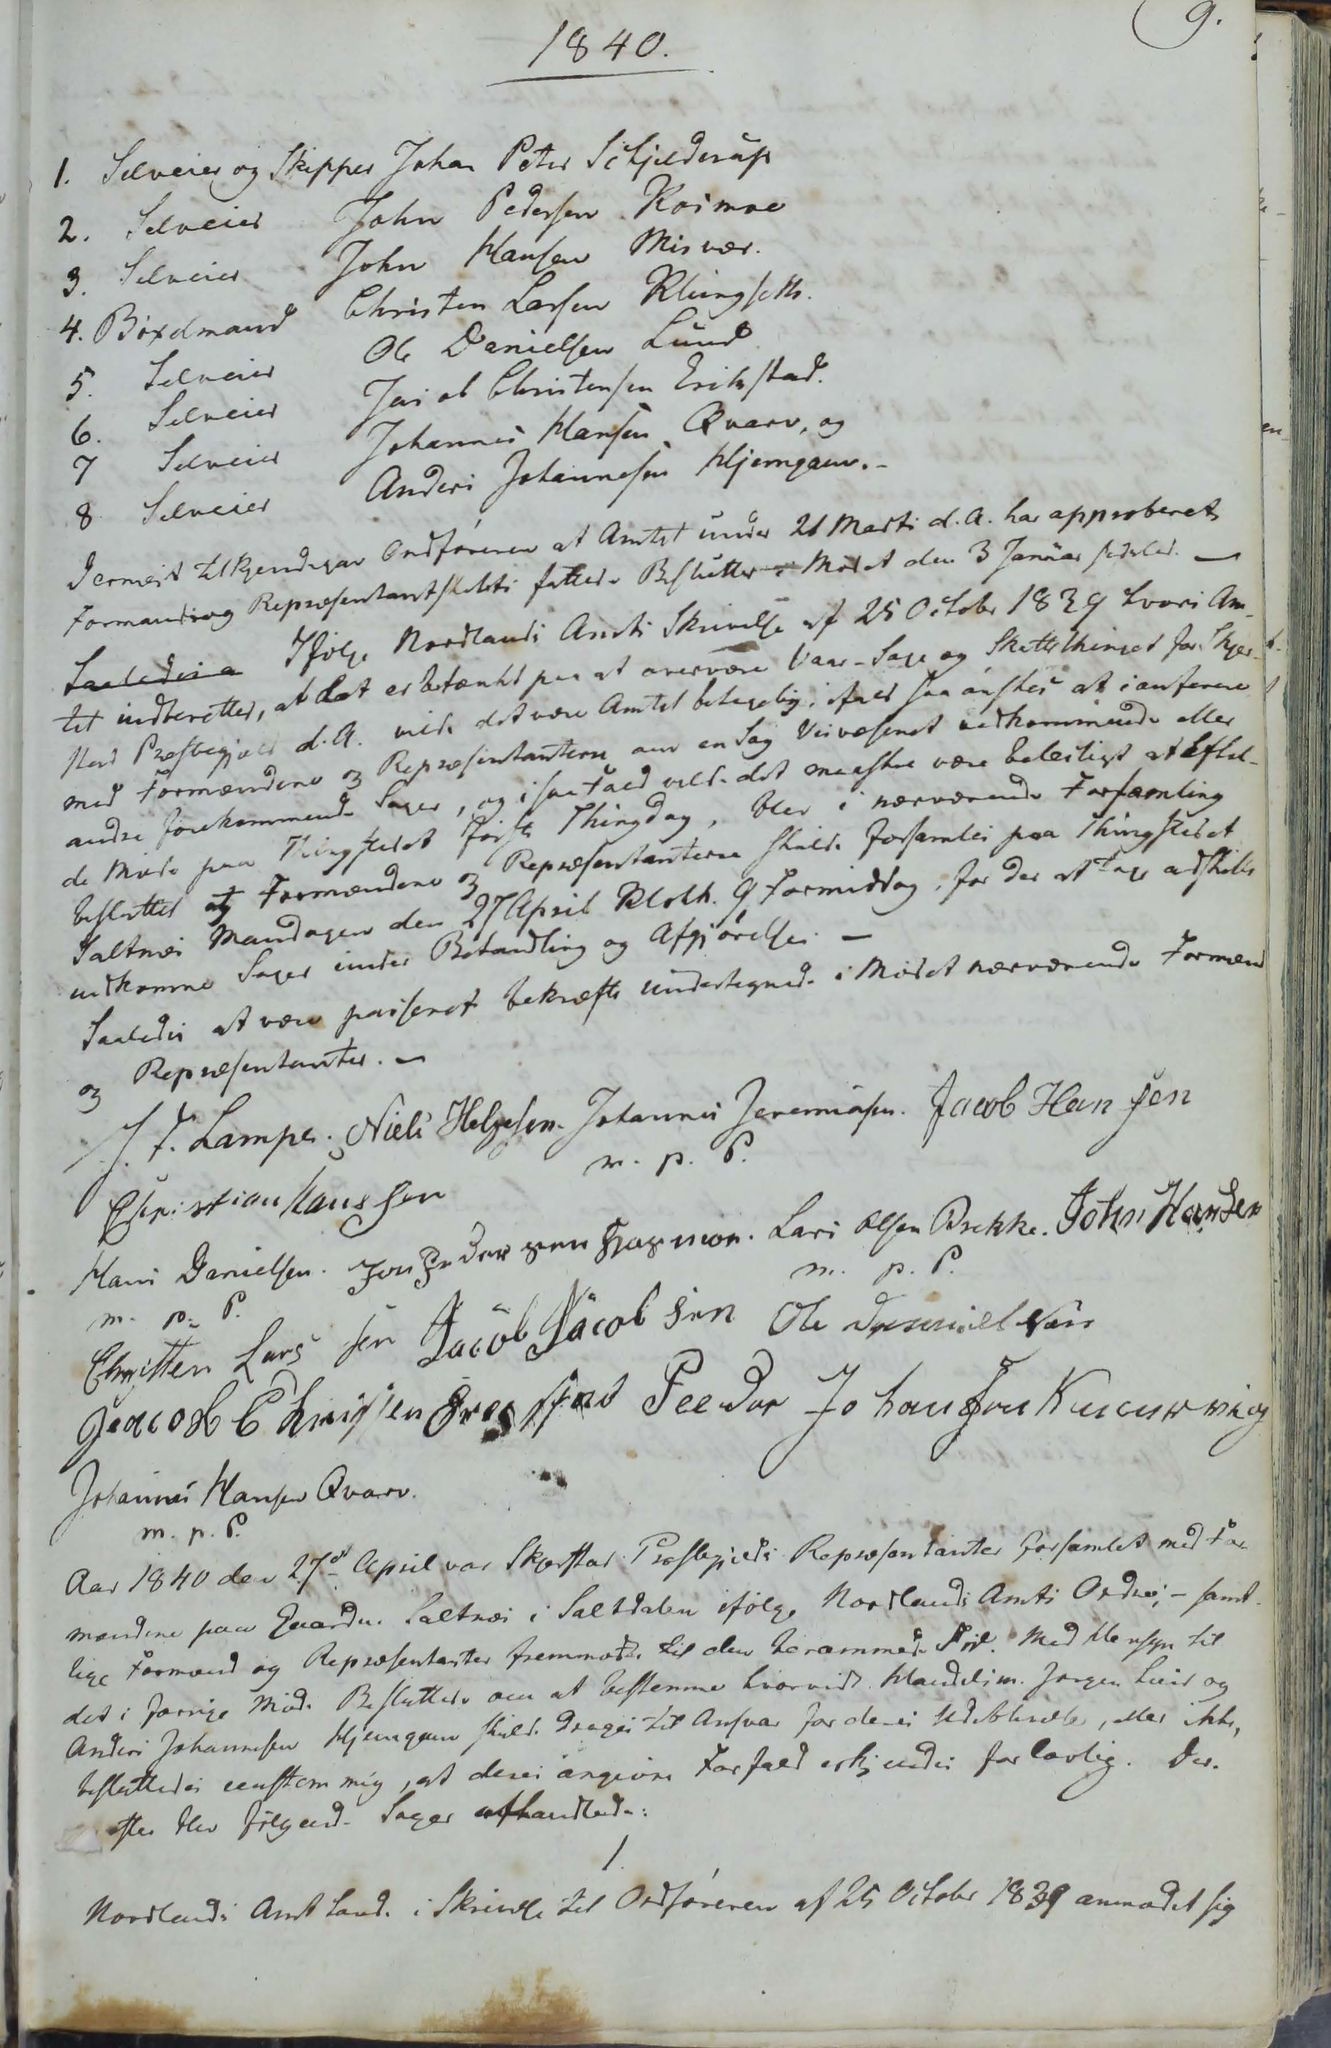 9.
1840.
1. Selveier og Skipper Johan Peter Schjelderup
2. Selveier John Pedersen Kosmoe
3. Selveier John Hansen Misvær.
4. Böxelmand Christen Larsen Klungseth.
5. Selveier Ole Danielsen Lund
6. Selveier Jacob Christensen Erikstad.
7 Selveier Johannes Hansen Qvarv, og
8 Selveier Anders Johannesen Hjemgam.-
Dernæst tilkjendegav Ordföreren at Amtet under 21 Marts d. A. har approberet
Formands og Repræsentantskabets fattede Beslutter i Mödet den 3 Januar sidstl. —
Saaledes a Ifölge Nordlands Amts Skrivelse af 25 October 1839 hvori Am-
tet indberetter, at det er betænkt paa at overvære Vaar-Sage og Skattethinget for Skjer-
stad Præstegjeld d. A. vilde det være Amtet behagelig, ifald saa önskes at conferere
med Formændene og Repræsentanterne om en Sag Veivæsenet vedkommende eller
andre forekommende Sager, og i saa Fald vilde det maaskee være beleiligt at afhol-
de Möde paa Thingstedet förste Thingdag, blev i nærværende Forsamling
besluttet at Formændene og Repræsentanterne skulde forsamles paa Thingstedet
Saltnæs Mandagen den 27 April Klokk. 9 Formiddag, for der at tage adskille
udkomne Sager under Behandling og Afgjörelse. —
Saaledes at være passeret bekræfte undertegnede i Mödet nærværende Formænd
og Repræsentanter. —
J. F. Lampe. Niels Helgesen. Johannes Jeremiasen. Jacob Hansen
m. p. P.
Christian Hanssen
Hans Danielsen. Jon Pedersen Lars Olsen Brekke. John Hansen
m. p. P. m. p. P.
Christen Larssen Jacob Jacobsen Ole Danielsen
Jeacob Chrissen Peedar Johansen
Johannes Hansen Qvarv.
m. p. P.
Aar 1840 den 27de April var Skjerstad Præstegjelds Repræsentanter forsamlet med For-
mændene paa Gaarden Saltnæs i Saltdalen ifölge Nordlands Amts Ordre; - samt-
lige Formænd og Repræsentanter fremmödte til den berammede Tid. Med Hensyn til
det i forrige Möde Besluttede om at bestemme hvorvidt Handelsm. Jörgen Luis og
Anders Johannesen Hjemgam skulde drages til Ansvar for deres Udeblivelse, eller ikke,
besluttedes eenstemmig, at deres angivne Forfald erkjendes for lovlig. Der-
efter blev fölgende Sager afhandlede:
1
Nordlands Amt havde i Skrivelse til Ordföreren af 25 October 1839 anmodet sig